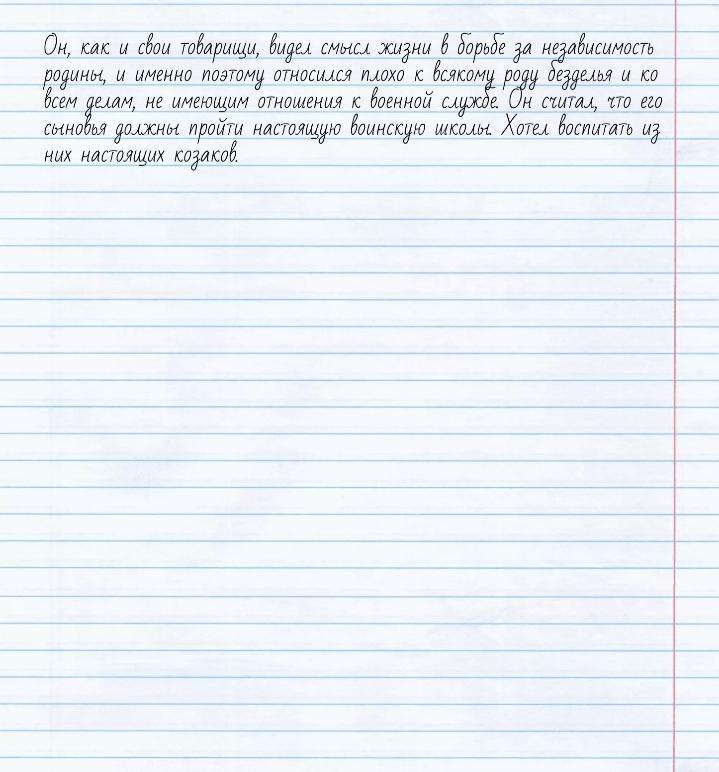 Он, как и свои товарищи, видел смысл жизни в борьбе за независимость
родины, и именно поэтому относился плохо к всякому роду безделья и ко
всем делам, не имеющим отношения к военной службе. Он считал, что его
сыновья должны пройти настоящую воинскую школы. Хотел воспитать из
них настоящих козаков.